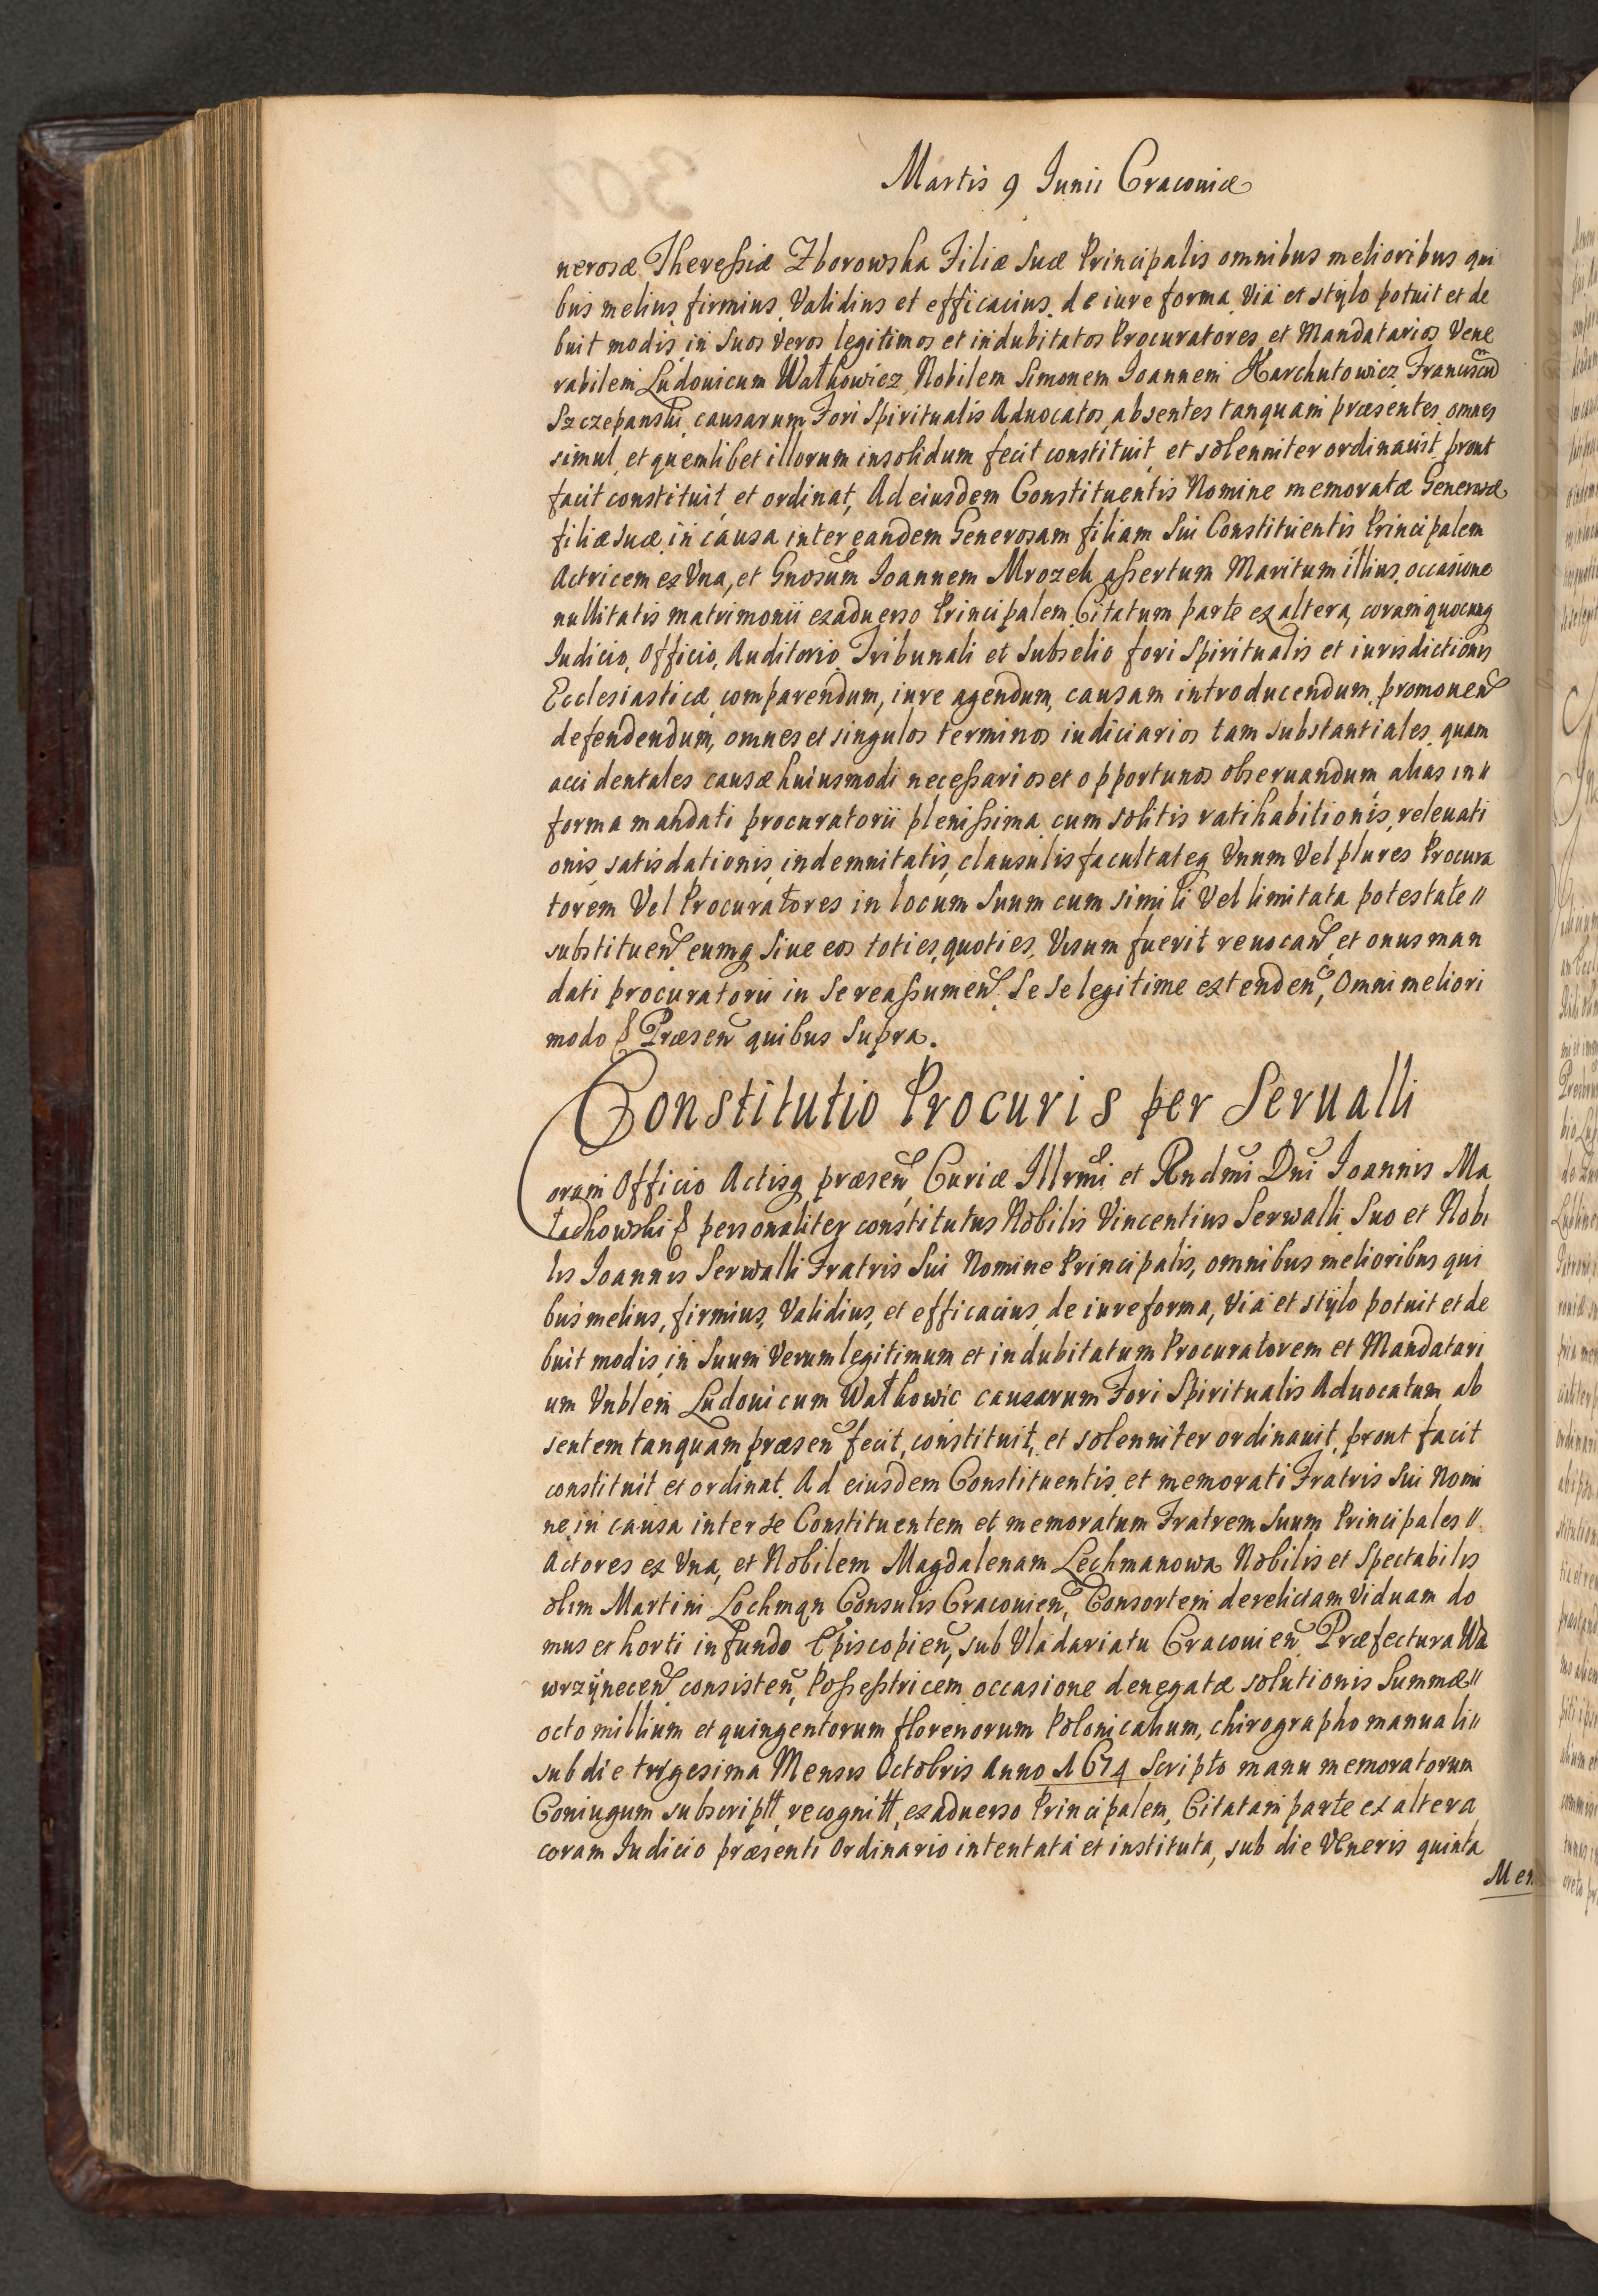 Martis 9 Junii Cracoviæ
nerosæ Theressiæ Zborowska Filiæ Suæ Principalis omnibus melioribus qui
bus melius firmius Validius et efficacius de iure forma Via et stÿlo potuit et de
buit modis in Suos Veros legitimos et indubitatos Procuratores et Mandatarios Vene
rabilem Ludouicum Wałkowicz Nobilem Simonem Joannem Karchutowicz Franciscũ
Szczepanski causarum Fori Spiritualis Aduocatos absentes tanquam præsentes omnes
simul et quemlibet illorum insolidum fecit constituit et solenniter ordinauit prout
facit constituit et ordinat, Ad eiusdem Constituentis Nomine memoratæ Generosæ
filiæ suæ in causa inter eandem Generosam filiam Sui Constituentis Principalem
Actricem ex Vna, et Gnosum Joannem Mrozek assertum Maritum illius occasione
nullitatis matrimonii exaduerso Principalem Citatum parte ex altera, coram quocunq
Iudicio, Officio, Auditorio Tribunali et Subselio fori Spiritualis et iurisdictionis
Ecclesiasticæ comparendum, iure agendum, causam introducendum, promouen̄
defendendum, omnes et singulos terminos iudiciarios tam substantiales quam
accidentales causæ huiusmodi necessarios et opportunos obseruandum, alias in〃
forma mandati procuratorii plenissima cum solitis ratihabitionis, releuati
onis satisdationis, indemnitatis, clausulis facultateq Vnum Vel plures Procura
torem Vel Procuratores in locum Suum cum simili Vel limitata potestate〃
substituen̄ eumq Siue eos toties, quoties, Visum fuerit reuocan̄ et onus man
dati procuratorii in Se reassumen̄ Se Se legitime extenden̄, Omni meliori
modo & Præsen̄ quibus Supra.
Constitutio Procuris per Serualli
Coram Officio Actisq præsen̄ Curiæ Illrmi et Rndmi Dni Joannis Ma
łachowski & personaliter constitutus Nobilis Vincentius Serwalli Suo et Nobi
lis Joannis Serwalli Fratris Sui Nomine Principalis, omnibus melioribus qui
bus melius, firmius, Validius, et efficacius, de iure forma, Via et stÿlo potuit et de
buit modis in Suum Verum legitimum et indubitatum Procuratorem et Mandatari
um Vnblem Ludouicum Wałkowic causarum Fori Spiritualis Aduocatum ab
sentem tanquam præsen̄ fecit, constituit, et solenniter ordinauit, prout facit
constituit et ordinat. Ad eiusdem Constituentis et memorati Fratris Sui Nomi
ne in causa inter se Constituentem et memoratum Fratrem Suum Principales〃
Actores ex Vna, et Nobilem Magdalenam Lechmanowa Nobilis et Spectabilis
olim Martini Lochman Consulis Cracouien̄, Consortem derelictam Viduam do
mus et horti in fundo Episcopien̄, sub Vladariatu Cracouien̄ Præfectura Wa
wrzÿnecen̄ consisten̄, Possestricem occasione denegatæ solutionis Summæ〃
octo millium et quingentorum florenorum Polonicalium, chirographo manuali〃
sub die trigesima Mensis Octobris Anno 1674 Scripto manu memoratorum
Coniugum subscriptt, recognitt, exaduerso Principalem, Citatam parte ex altera
coram Iudicio præsenti Ordinario intentata et instituta, sub die Veneris quinta